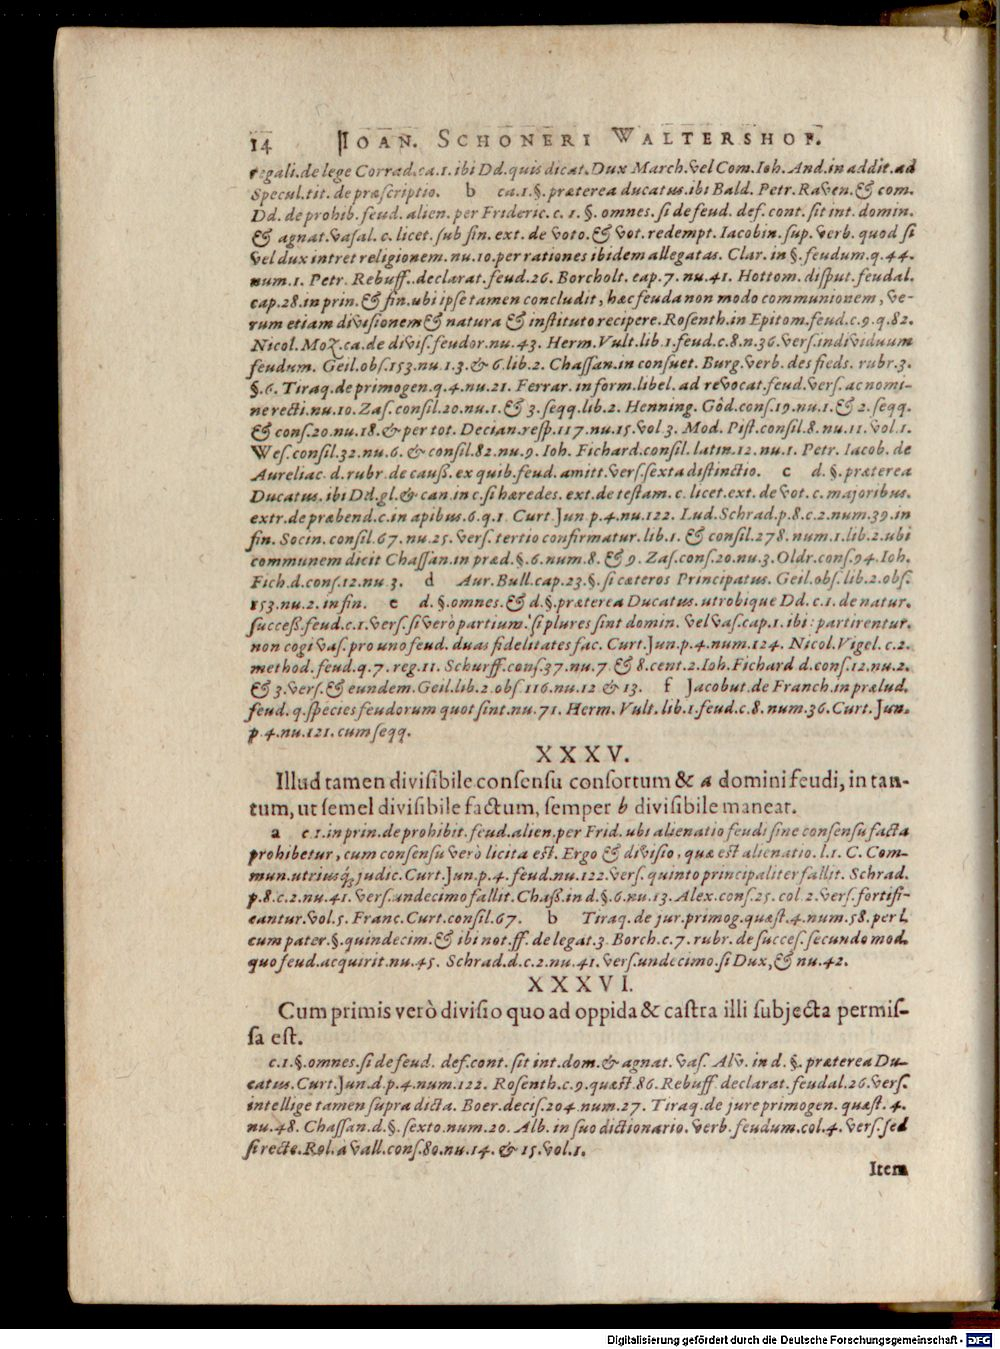 14 IOAN. SCHONERI WALTERSHOF.
regali. de lege Corrad. ca. 1. ibi Dd. quis dicat. Dux March. vel Com. Ioh. And. in addit. ad
Specul. tit. de præscriptio. b ca. 1. §. præterea ducatus. ibi Bald. Petr. Raven. & com.
Dd. de prohib. feud. alien. per Frideric. c. 1. §. omnes. si de feud. def. cont. sit int. domin.
& agnat. vasal. c. licet. sub fin. ext. de voto. & vot. redempt. Iacobin. sup. verb. quod si
vel dux intret religionem. nu. 10. per rationes ibidem allegatas. Clar. in §. feudum. q. 44.
num. 1. Petr. Rebuff.. declarat. feud. 26. Borcholt. cap. 7. nu. 41. Hottom. disput. feudal.
cap. 28. in prin. & fin. ubi ipse tamen concludit, hæc feuda non modo communionem, ve-
rum etiam divisionem & natura & instituto recipere. Rosenth. in Epitom. feud. c. 9. q. 82.
Nicol. Moz. ca. de divis. feudor. nu. 43. Herm. Vult. lib. 1. feud. c. 8. n. 36. vers. individuum
feudum. Geil. obs. 153. nu. 1. 3. & 6. lib. 2. Chassan. in consuet. Burg. verb. des fieds. rubr. 3.
§. 6. Tiraq. de primogen. q. 4. nu. 21. Ferrar. in form. libel. ad revocat. feud. vers. ac nomi-
ne recti. nu. 10. Zas. consil. 20. nu. 1. & 3. seqq. lib. 2. Henning. Göd. cons. 19. nu. 1. & 2. seqq.
& cons. 20. nu. 18. & per tot. Decian. resp. 117. nu. 15. vol 3. Mod. Pist. consil. 8. nu. 11. vol. 1.
Wes. consil. 32. nu. 6. & consil. 82. nu. 9. Ioh. Fichard. consil. latin. 12. nu. 1. Petr. Iacob. de
Aureliac. d. rubr. de causs. ex quib. feud. amitt. vers. sexta distinctio. c d. §. præterea
Ducatus. ibi Dd. gl. & can. in c. si hæredes. ext. de testam. c. licet. ext. de vot. c. majoribus.
extr. de præbend. c. in apibus. 6. q. 1. Curt. Jun. p. 4. nu. 122. Lud. Schrad. p. 8. c. 2. num. 39. in
fin. Socin. consil. 67. nu. 25. vers. tertio confirmatur. lib. 1. & consil. 278. num. 1. lib. 2. ubi
communem dicit Chassan. in præd. §. 6. num. 8. & 9. Zas. cons. 20. nu. 3. Oldr. cons. 94. Ioh.
Fich. d. cons. 12. nu. 3. d Aur. Bull. cap. 23. §. si cæteros Principatus. Geil. obs. lib. 2. obs.
153. nu. 2. in fin. e d. §. omnes. & d. §. præterea Ducatus. utrobique Dd. c. 1. de natur.
success. feud. c. 1. vers. si verò partium. si plures sint domin. vel vas. cap. 1. ibi: partirentur.
non cogi vas. pro uno feud. duas fidelitates fac. Curt. Jun. p. 4. num. 124. Nicol. Vigel. c. 2.
method. feud. q. 7. reg. 11. Schurff. cons. 37. nu. 7. & 8. cent. 2. Ioh. Fichard d. cons. 12. nu. 2.
& 3. vers. & eundem. Geil. lib. 2. obs. 116. nu. 12 & 13. f Jacobut. de Franch. in prælud.
feud. q. species feudorum quot sint. nu. 71. Herm. Vult. lib. 1. feud. c. 8. num. 36. Curt. Jun.
p. 4. nu. 121. cum seqq.
XXXV.
Illud tamen divisibile consensu consortum & a domini feudi, in tan-
tum, ut semel divisibile factum, semper b divisibile maneat.
a c. 1. in prin. de prohibit. feud. alien. per Frid. ubi alienatio feudi sine consensu facta
prohibetur, cum consensu verò licita est. Ergo & divisio, quæ est alienatio. l. 1. C. Com-
mun. utriusq; judic. Curt. Jun. p. 4. feud. nu. 122. vers. quinto principaliter fallit. Schrad.
p. 8. c. 2. nu. 41. vers. undecimo fallit. Chass. in d. §. 6. nu. 13. Alex. cons. 25. col 2. vers. fortifi-
cantur. vol. 5. Franc. Curt. consil. 67. b Tiraq. de jur. primog. quæst. 4. num. 58. per l.
cum pater. §. quindecim. & ibi not. ff. de legat. 3. Borch. c. 7. rubr. de succes. secundo mod.
quo feud. acquirit. nu. 45. Schrad. d. c. 2. nu. 41. vers. undecimo. si Dux, & nu. 42.
XXXVI.
Cum primis verò divisio quo ad oppida & castra illi subjecta permis-
sa est.
c. 1. §. omnes. si de feud. def. cont. sit int. dom. & agnat. vas. Alv. in d. §. præterea Du-
catus. Curt. Jun. d. p. 4. num. 122. Rosenth. c. 9. quæst. 86. Rebuff. declarat. feudal. 26. vers.
intellige tamen supra dicta. Boer. decis. 204. num. 27. Tiraq. de jure primogen. quæst. 4.
nu. 48. Chassan. d. §. sexto. num. 20. Alb. in suo dictionario. verb. feudum. col. 4. vers. sed
si recte. Rol. à Vall. cons. 80. nu. 14. & 15. vol. 1.
Item
Digitalisierung gefördert durch die Deutsche Forschungsgemeinschaft - DFG